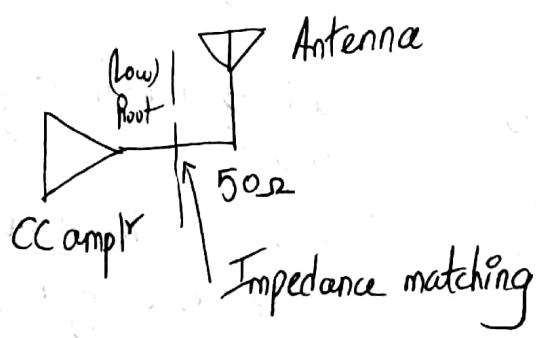 Antenna
(Low)
Rout
50Ω
CC amplr
Impedance matching